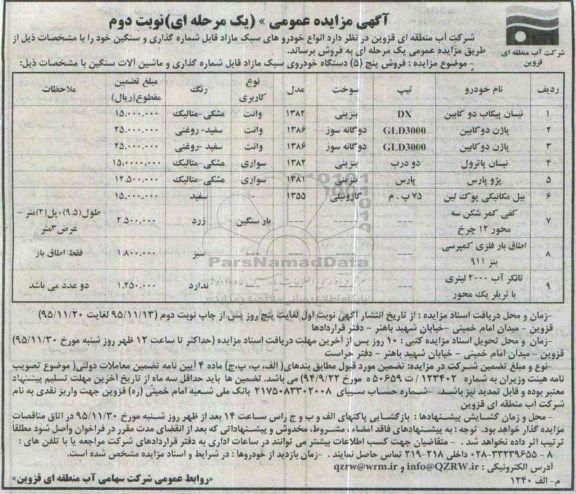 آگهی مزایده عمومی » (یک مرحله ای) نوبت دوم
شرکت آب منطقه ای قزوین
شرکت آب منطقه ای قزوین در نظر دارد انواع خودرو های سبک مازاد قابل شماره گذاری و سنگین خود را با مشخصات ذیل از
طریق مزایده عمومی یک مرحله ای به فروش برساند.
- موضوع مزایده : فروش پنج (۵) دستگاه خودروی سبک مازاد قابل شماره گذاری و ماشین آلات سنگین با مشخصات ذیل:
ردیف نام خودرو تیپ سوخت مدل نوع کاربری رنگ مبلغ تضمین مقطوع(ریال) ملاحظات
۱ نیسان پیکاب دو کابین DX بنزینی ۱۳۸۲ وانت مشکی-متالیک ۱۵.۰۰۰.۰۰۰
۲ پاژن دوکابین GLD3000 دوگانه سوز ۱۳۸۶ وانت سفید-روغنی ۲۵.۰۰۰.۰۰۰
۳ پاژن دوکابین GLD3000 دوگانه سوز ۱۳۸۶ وانت سفید-روغنی ۲۵.۰۰۰.۰۰۰
۴ نیسان پاترول دو درب بنزینی ۱۳۸۲ سواری مشکی-متالیک ۱۵.۰۰۰۰۰۰
۵ پژو پارس پارس بنزینی ۱۳۸۱ سواری مشکی-متالیک ۱۲.۵۰۰.۰۰۰
۶ بیل مکانیکی پوک لین ۷۵ پ . م گازوئیلی ۱۳۵۵ سفید ۱۵.۰۰۰.۰۰۰
۷ کفی کمر شکن سه محور ۱۲ چرخ --- --- --- بار سنگین زرد ۲.۵۰۰.۰۰۰ طول(۹.۵)-پل(۲)متر-عرض۳متر
۸ اطاق بار فلزی کمپرسی بنز ۹۱۱ --- --- --- سبز ۱.۸۰۰.۰۰۰ فقط اطاق بار
۹ تانکر آب ۲۰۰۰ لیتری با تریلر یک محور --- --- --- ندارد ۱.۲۵۰.۰۰۰ دو عدد می باشد
ParsNamadData
-زمان و محل دریافت اسناد مزایده : از تاریخ انتشار آگهی نوبت اول لغایت پنج روز پس از چاپ نوبت دوم (۹۵/۱۱/۱۳ لغایت ۹۵/۱۱/۲۰)
قزوین - میدان امام خمینی -خیابان شهید باهنر - دفتر قراردادها
-زمان و محل تحویل اسناد مزایده کتبی : ۱۰ روز پس از آخرین مهلت دریافت اسناد مزایده (حداکثر تا ساعت ۱۲ ظهر روز شنبه مورخ ۹۵/۱۱/۳۰)
قزوین - میدان امام خمینی - خیابان شهید باهنر - دفتر حراست
-نوع و مبلغ تضمین شرکت در مزایده: تضمین مورد قبول مطابق بندهای (الف، ب، پ،ج) ماده ۴ آیین نامه تضمین معاملات دولتی( موضوع تصویب
نامه هیئت وزیران به شماره ۱۲۳۴۰۲/ت ۵۰۶۵۹ ه مورخ ۹۴/۹/۲۲) می باشد. تضمین ها باید حداقل سه ماه از تاریخ آخرین مهلت تسلیم پیشنهاد
معتبر بوده و قابل تمدید نیز باشد. - شماره حساب سیبای ۲۱۷۵۰۸۳۳۰۲۰۰۸ بانک ملی شعبه امام خمینی (ره) قزوین جهت واریز نقدی به نام
شرکت آب منطقه ای قزوین
- محل و زمان گشایش پیشنهادها : بازگشایی پاکتهای الف و ب و ج راس ساعت ۱۴ بعد از ظهر روز شنبه مورخ ۹۵/۱۱/۳۰ در اتاق مناقصات
مزایده گذار خواهد بود. توجه : به پیشنهادهای فاقد امضاء ، مشروط، مخدوش و پیشنهاداتی که بعد از انقضای مدت مقرر در فراخوان واصل شود مطلقا
ترتیب اثر داده نخواهد شد . - متقاضیان جهت کسب اطلاعات بیشتر می توانند در ساعات اداری به دفتر قراردادهای شرکت مراجعه یا با تلفن های :
۸ - ۳۳۲۳۹۶۵۵-۰۲۸ داخلی ۲۱۸-۲۱۹ تماس حاصل نمایند . -زمان بازدید از خودروها : در شرایط و اسناد مزایده مشخص شده است.
آدرس الکترونیکی : info@QZRW.ir و qzrw@wrm.ir
م- الف ۱۲۴۰
»روابط عمومی شرکت سهامی آب منطقه ای قزوین«